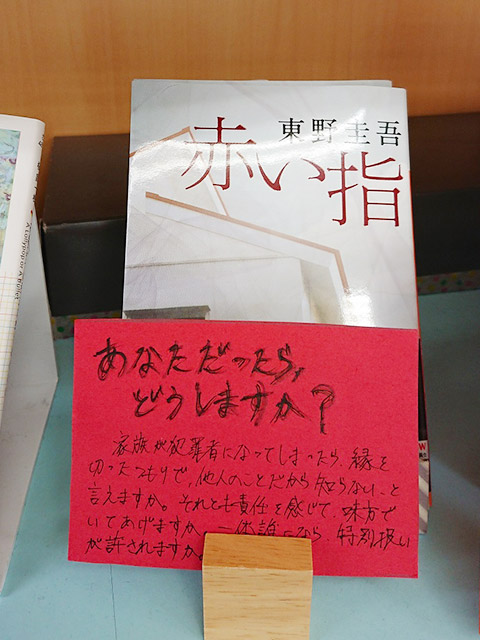 東野圭吾
赤い指
あなただったら、
どうしますか？
家族が犯罪者になってしまったら、縁を
切ったつもりで、他人のことだから知らないと
言えますか。それとも責任を感じて、味方で
いてあげますか 一体誰になら、特別扱い
が許されますか
A Lollypop or A Bullet